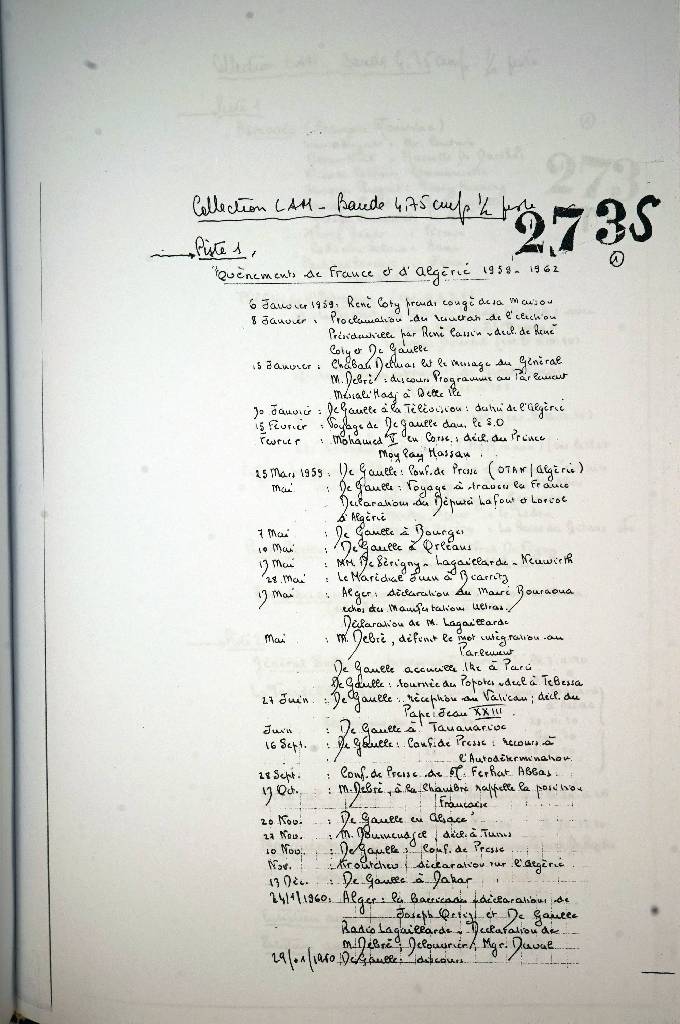 Collection LAM - Bande 4,75 cm/s 1/2 piste
273S
1
→ Piste 1.
Evènements de France et d'Algérie 1959-1962
6 Janvier 1959: René Coty prends congé de sa Maison
8 Janvier : Proclamation des résultats de l'élection
Présidentielle par René Cassin - décl. de René
Coty et De Gaulle
15 Janvier : Chaban Delmas lit le message du Général
M. Debré : discours Programme au Parlement
Messali Hadj à Belle Ile
30 Janvier : De Gaulle à la Télévision : de l'Algérie
15 Février : Voyage de De Gaulle dans le S.O
Février : Mohamed V en Corse : décl. du Prince
Moylay Hassan.
25 Mars 1959 : De Gaulle : Conf. de Presse (OTAN/Algérie)
Mai : De Gaulle : Voyage à travers la France
Déclarations du Député Lafont et
d'Algérie
7 Mai : De Gaulle à Bourges
10 Mai : De Gaulle à Orléans
13 Mai : MM De Sérigny - Lagaillarde - Neuwirth
28 Mai : Le Maréchal Juin à Biarritz
13 Mai : Alger : déclaration du Maire Bouraoua
échos des Manifestations Ultras.
Déclaration de M. Lagaillarde
Mai : M. Debré, définit le mot intégration au
Parlement
De Gaulle accueille Ike à Paris
De Gaulle : tournée des Popotes - décl à Tebessa
27 Juin : De Gaulle : réception au Vatican ; décl. du
Pape : Jean XXIII.
Juin : De Gaulle à Tananarive
16 Sept. : De Gaulle : Conf. de Presse : recours à
l'Autodétermination
28 Sept. : Conf. de Presse de M. Ferhat Abbas
13 Oct. : M. Debré, à la Chambre rappelle la position
Française
20 Nov. : De Gaulle en Alsace
27 Nov. : M. Boumendjel ; décl. à Tunis
10 Nov. : De Gaulle : Conf. de Presse
Nov. : Kroutchev : déclaration sur l'Algérie
13 Déc. : De Gaulle à Dakar
24/1/1960: Alger : les barricades : déclarations de
Joseph Ortiz et De Gaulle
Radio Lagaillarde - Déclaration de
M. Debré ; Delouvrier ; Mgr. Duval
29/01/1960 De Gaulle : discours